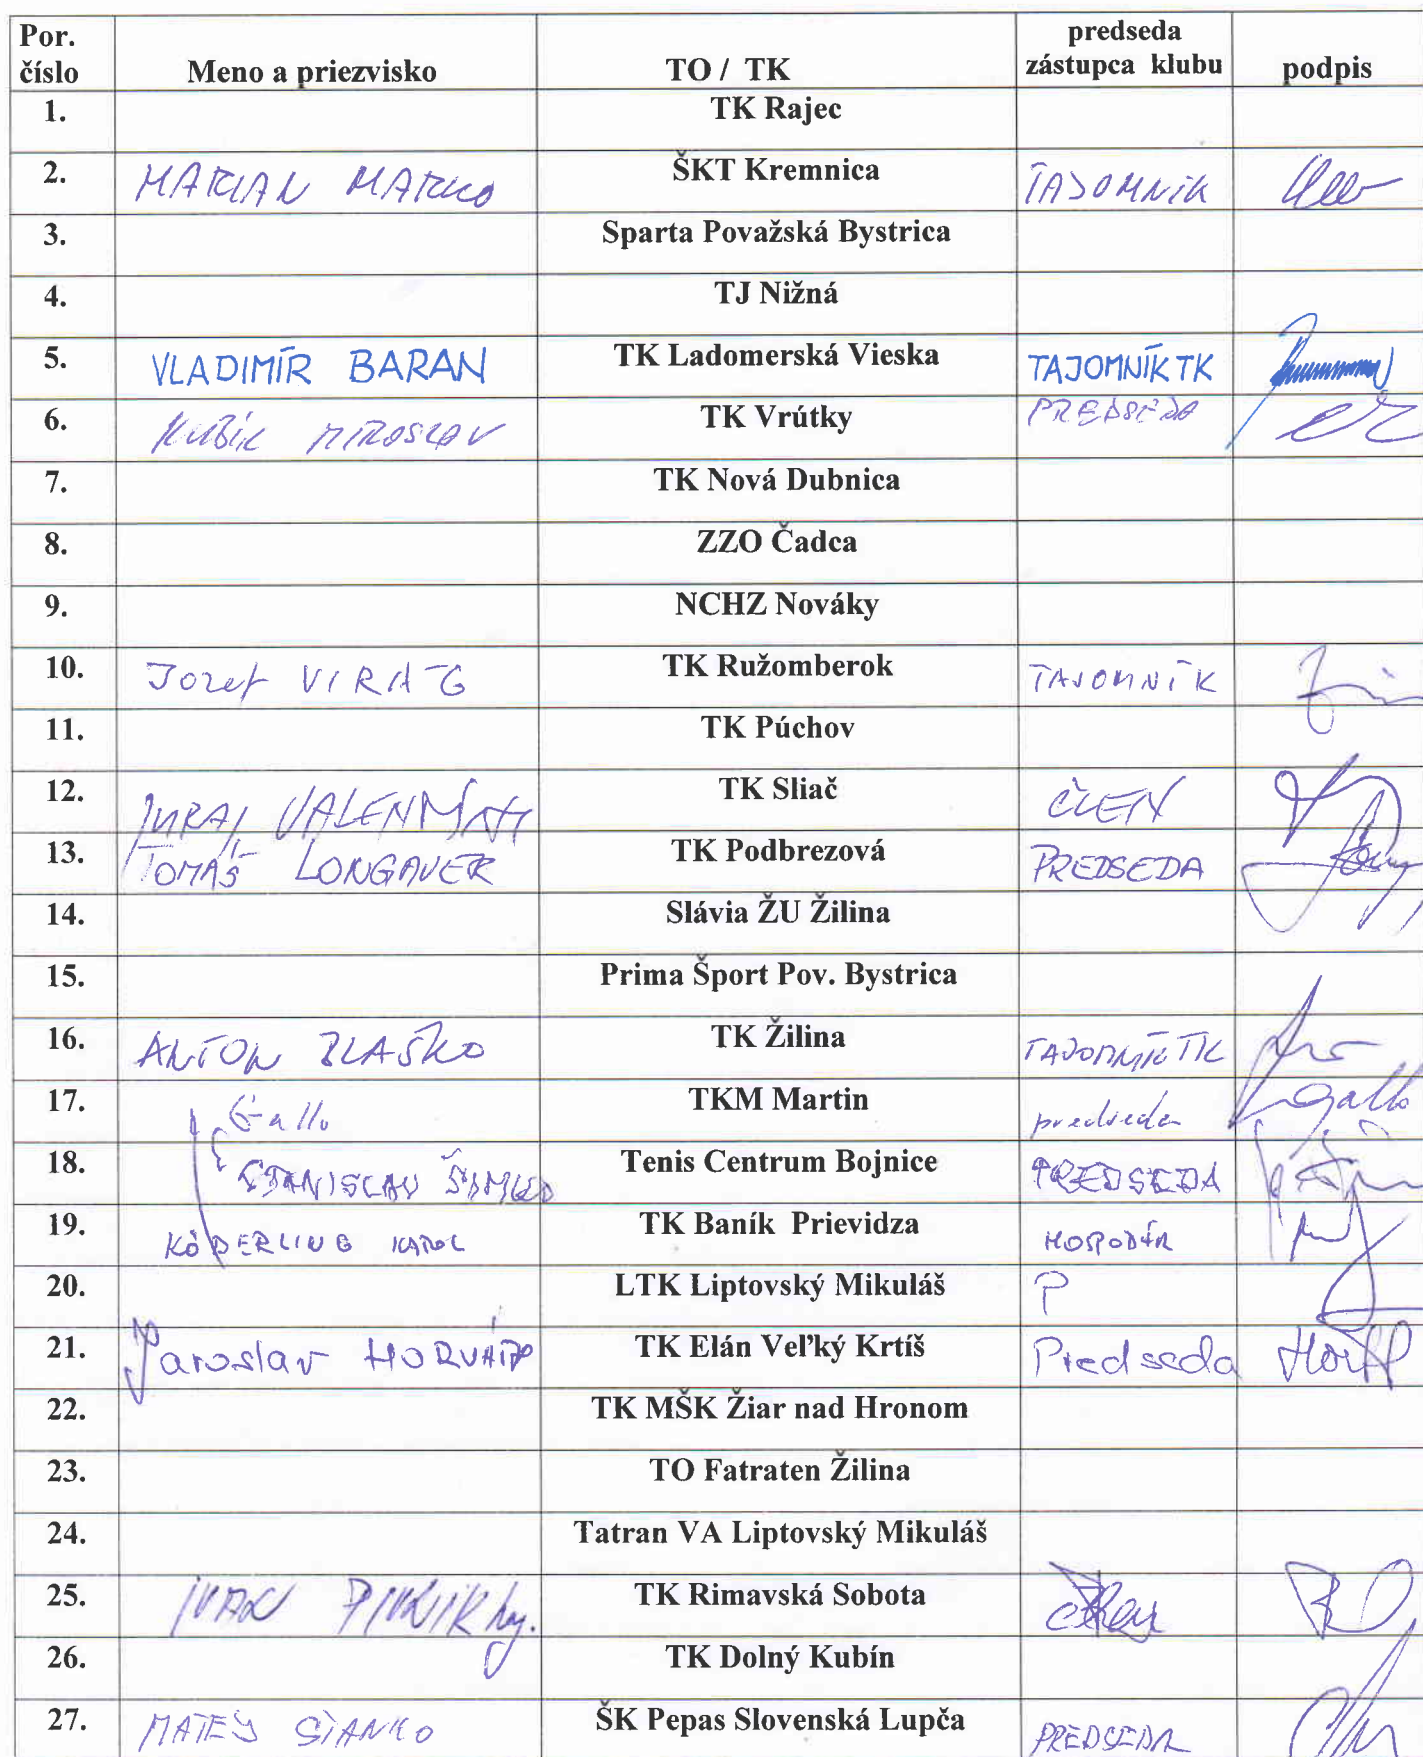 Por. číslo Meno a priezvisko TO / TK predseda zástupca klubu podpis
1. TK Rajec
2. MARIAN MARKO ŠKT Kremnica TAJOMNÍK
3. Sparta Považská Bystrica
4. TJ Nižná
5. VLADIMÍR BARAN TK Ladomerská Vieska TAJOMNÍK TK
6. KUBÍK MIROSLAV TK Vrútky PREDSEDA
7. TK Nová Dubnica
8. ZZO Čadca
9. NCHZ Nováky
10. Jozef VIRÁG TK Ružomberok TAJOMNÍK
11. TK Púchov
12. JURAJ TK Sliač ČLEN
13. TOMÁŠ LONGAVER TK Podbrezová PREDSEDA
14. Slávia ŽU Žilina
15. Prima Šport Pov. Bystrica
16. ANTON BLAŠKO TK Žilina TAJOMNÍK TK
17. Gallo TKM Martin predseda Gallo
18. STANISLAV ŠIMKO Tenis Centrum Bojnice PREDSEDA
19. KÖDERLING KAROL TK Baník Prievidza HOSPODÁR
20. LTK Liptovský Mikuláš P
21. Jaroslav HORVÁTH TK Elán Veľký Krtíš Predseda
22. TK MŠK Žiar nad Hronom
23. TO Fatraten Žilina
24. Tatran VA Liptovský Mikuláš
25. IVAN TK Rimavská Sobota
26. TK Dolný Kubín
27. MATEJ STANKO ŠK Pepas Slovenská Lupča PREDSEDA